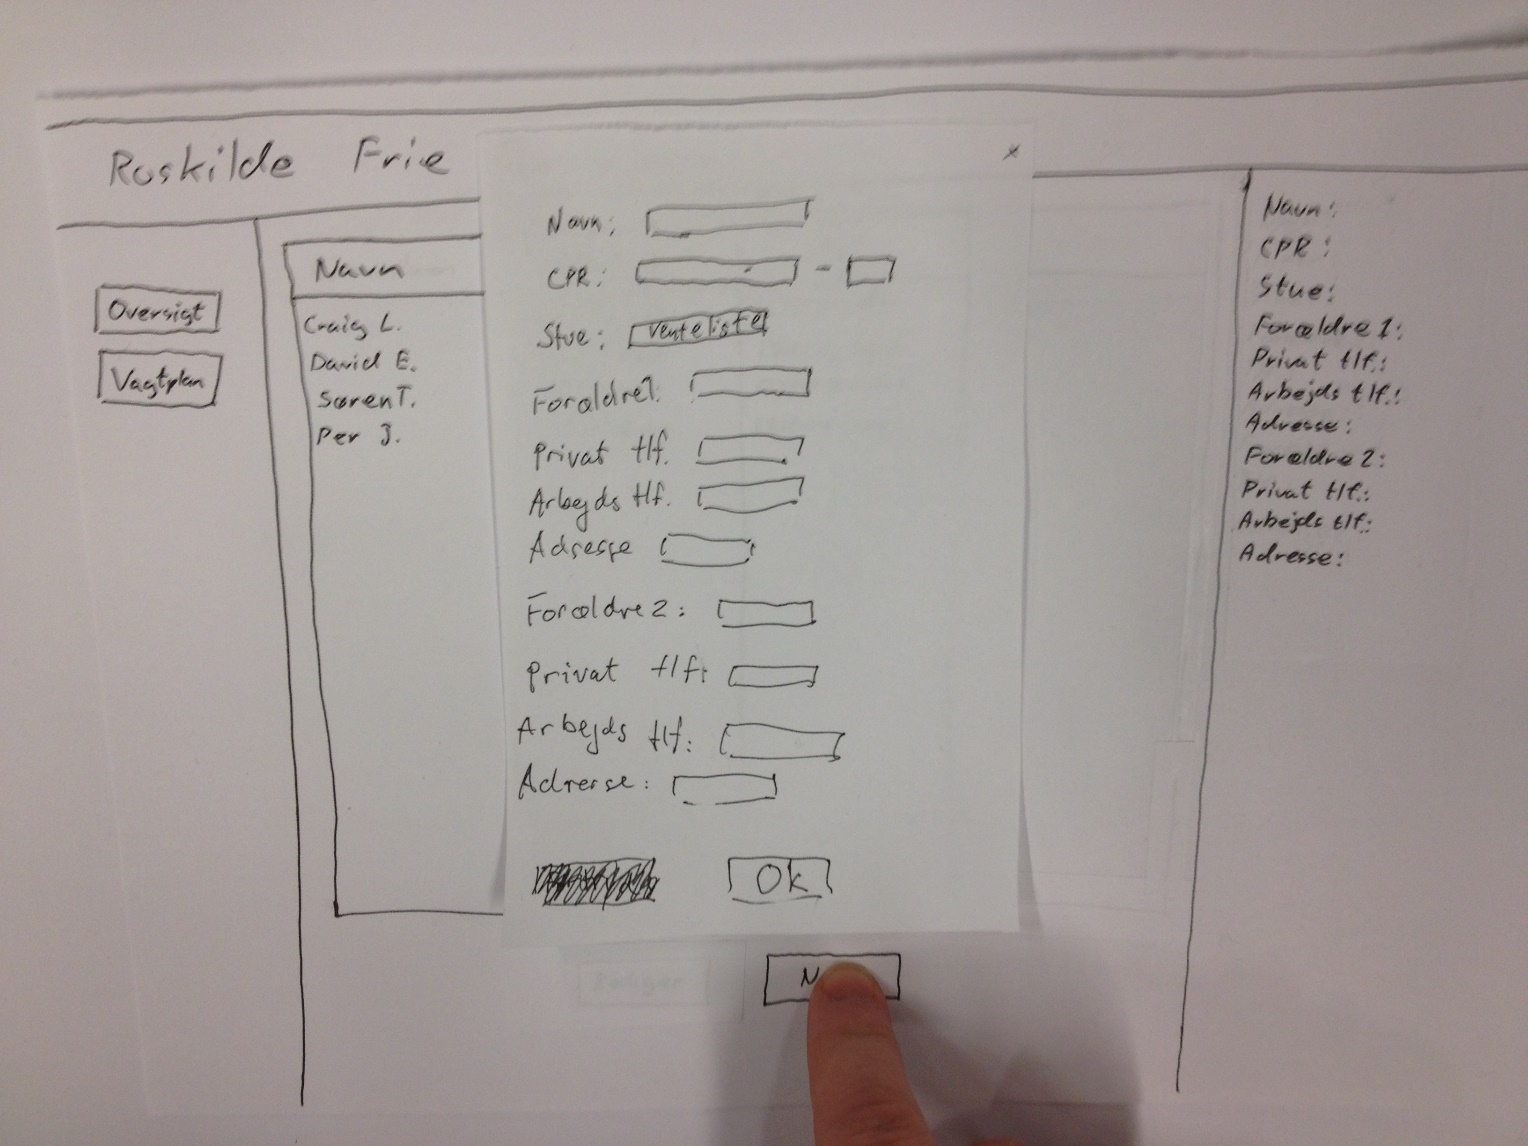 Roskilde Frie
Oversigt
Vagtplan
Navn
Craig L.
David E.
Søren T.
Per J.
x
Navn:
CPR: -
Stue: Venteliste
Forældre1:
Privat tlf.
Arbejds tlf.
Adresse
Forældre 2:
Privat tlf:
Arbejds tlf:
Adresse:
Ok
Navn:
CPR:
Stue:
Forældre 1:
Privat tlf.:
Arbejds tlf.:
Adresse:
Forældre 2:
Privat tlf.:
Arbejds tlf:
Adresse: